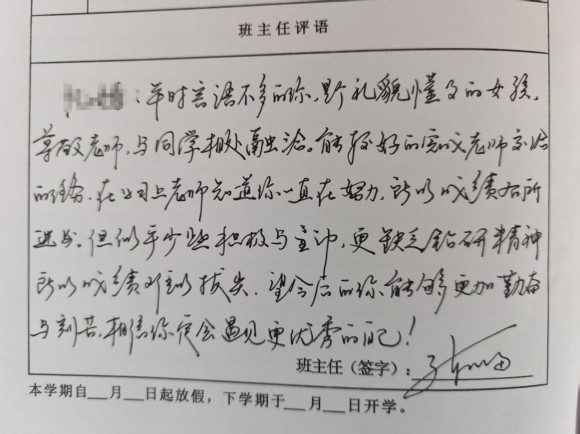 班主任评语
：平时言语不多的你，是个礼貌懂事的女孩，
尊敬老师，与同学相处融洽。能较好的完成老师交给
的任务，在学习上老师知道你一直在努力，所以成绩有所
进步。但似乎少些积极与主动，更缺乏钻研精神
所以成绩难以拔尖，望今后的你能够更加勤奋
与刻苦，相信你定会遇见更优秀的自己！
班主任（签字）：
本学期自__月__日起放假，下学期于__月__日开学。